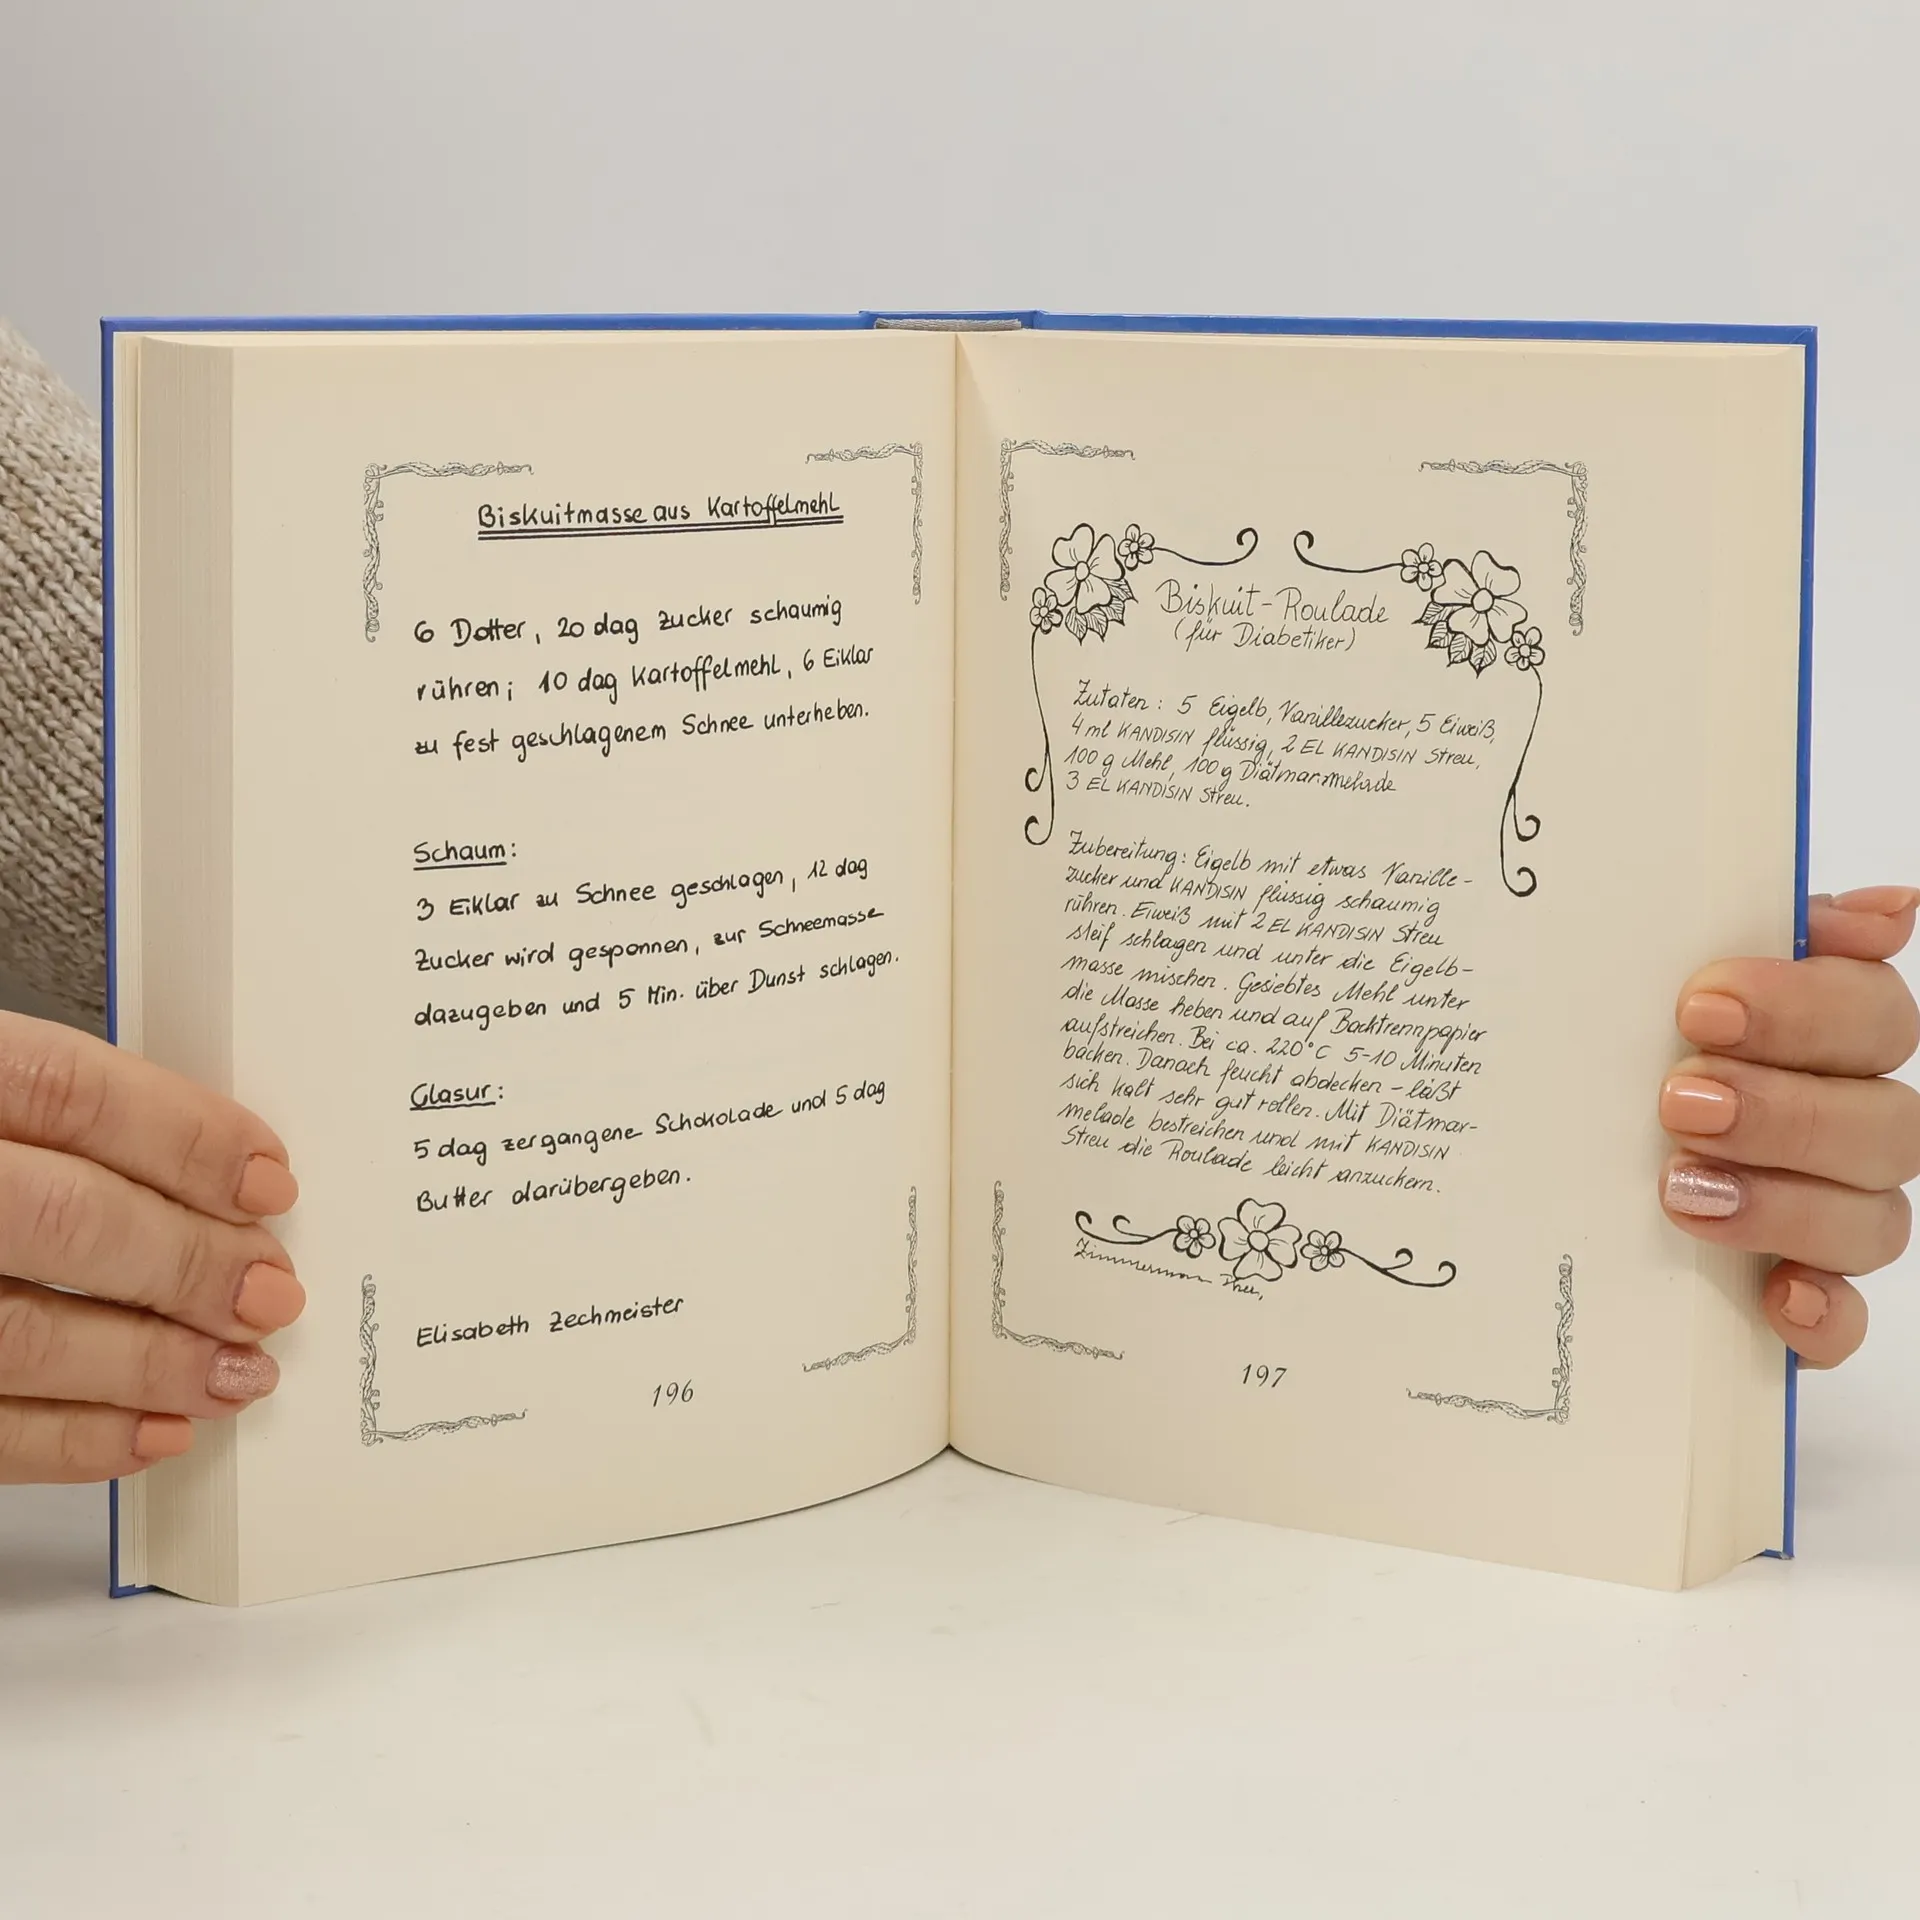 Biskuitmasse aus Kartoffelmehl
6 Dotter, 20 dag Zucker schaumig
rühren; 10 dag Kartoffelmehl, 6 Eiklar
zu fest geschlagenem Schnee unterheben.
Schaum:
3 Eiklar zu Schnee geschlagen, 12 dag
Zucker wird gesponnen, zur Schneemasse
dazugeben und 5 Min. über Dunst schlagen.
Glasur:
5 dag zergangene Schokolade und 5 dag
Butter darübergeben.
Elisabeth Zechmeister
196
Biskuit-Roulade
(für Diabetiker)
Zutaten: 5 Eigelb, Vanillezucker, 5 Eiweiß,
4 ml KANDISIN flüssig, 2 EL KANDISIN Streu,
100 g Mehl, 100 g Diätmarmelade
3 EL KANDISIN Streu.
Zubereitung: Eigelb mit etwas Vanille-
zucker und KANDISIN flüssig schaumig
rühren. Eiweiß mit 2 EL KANDISIN Streu
steif schlagen und unter die Eigelb-
masse mischen. Gesiebtes Mehl unter
die Masse heben und auf Backtrennpapier
aufstreichen. Bei ca. 220°C 5-10 Minuten
backen. Danach feucht abdecken - läßt
sich kalt sehr gut rollen. Mit Diätmar-
melade bestreichen und mit KANDISIN
Streu die Roulade leicht anzuckern.
Zimmermann
197